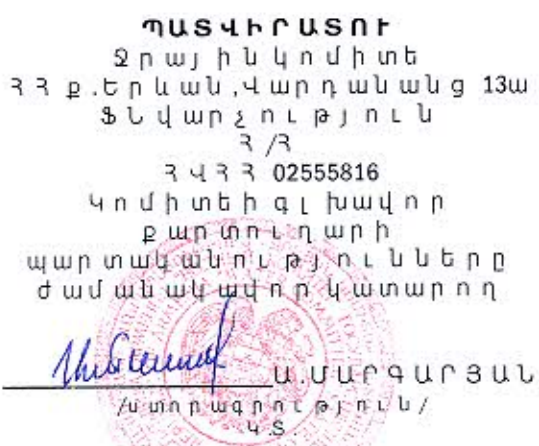 ՊԱՏՎԻՐԱՏՈՒ
Ջրային կոմիտե
ՀՀ ք.Երևան,Վարդանանց 13ա
ՖՆ վարչություն
Հ/Հ
ՀՎՀՀ 02555816
Կոմիտեի գլխավոր
քարտուղարի
պարտականությունները
ժամանակավոր կատարող
Ա.ՄԱՐԳԱՐՅԱՆ
/ստորագրություն/
Կ.Տ